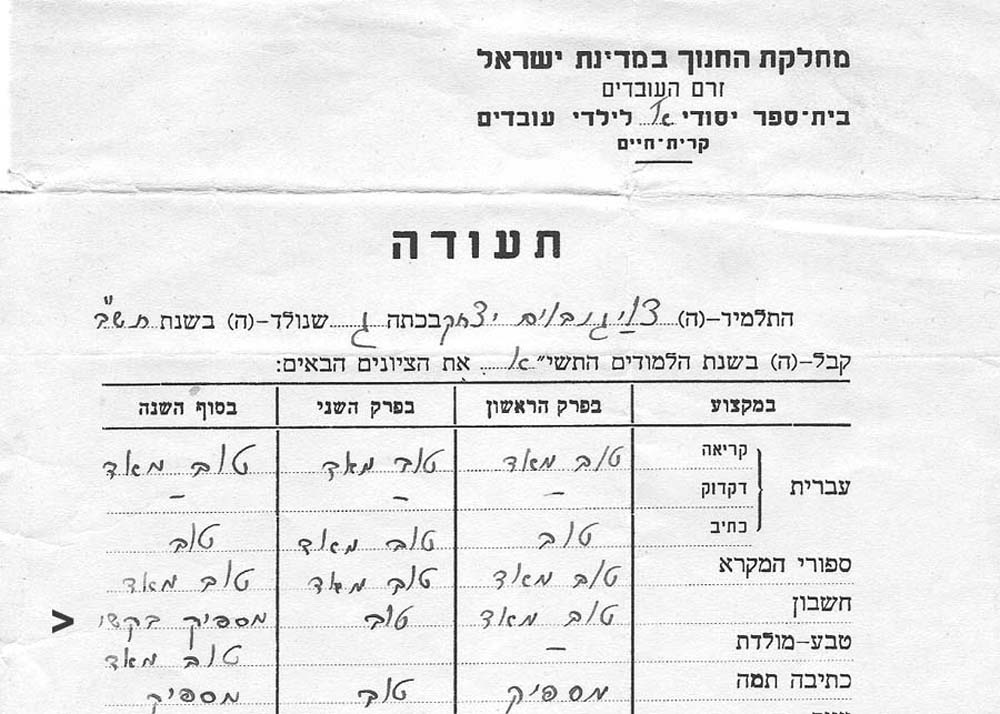 מחלקת החנוך במדינת ישראל
זרם העובדים
בית-ספר יסודי א' לילדי עובדים
קרית-חיים
תעודה
התלמיד-(ה) יצחק בכתה ג שנולד-(ה) בשנת תש"ב
קבל-(ה) בשנת הלמודים התשי"א את הציונים הבאים:
במקצוע בפרק הראשון בפרק השני בסוף השנה
עברית קריאה טוב מאד טוב מאד טוב מאד
דקדוק – – –
כתיב טוב טוב מאוד טוב
ספורי המקרא טוב מאוד טוב מאד טוב מאד
> חשבון טוב מאוד טוב מספיק בקשי
טבע-מולדת – טוב מאד
כתיבה תמה מספיק טוב מספיק